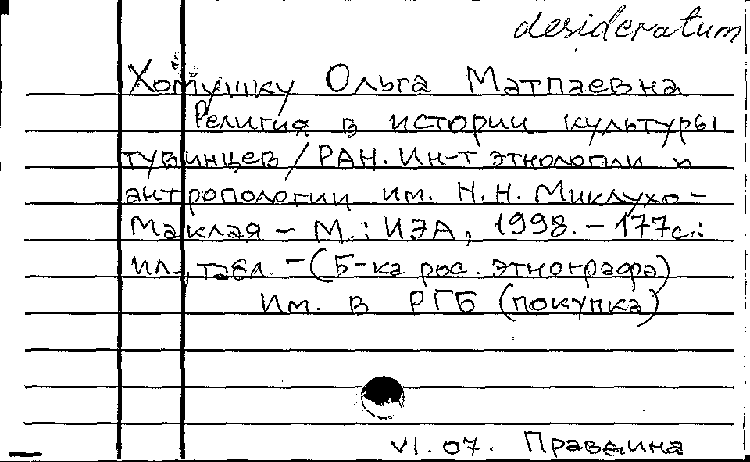 desideratum
Хомушку Ольга Матпаевна
Религия в истории культуры
тувинцев / РАН. Ин-т этнологии и
антропологии им. Н.Н. Миклухо-
Маклая - М.: ИЭА, 1998. - 177с.:
ил., табл. - (Б-ка рос. этнографа)
Им. в РГБ (покупка)
VI. 07. Правдина